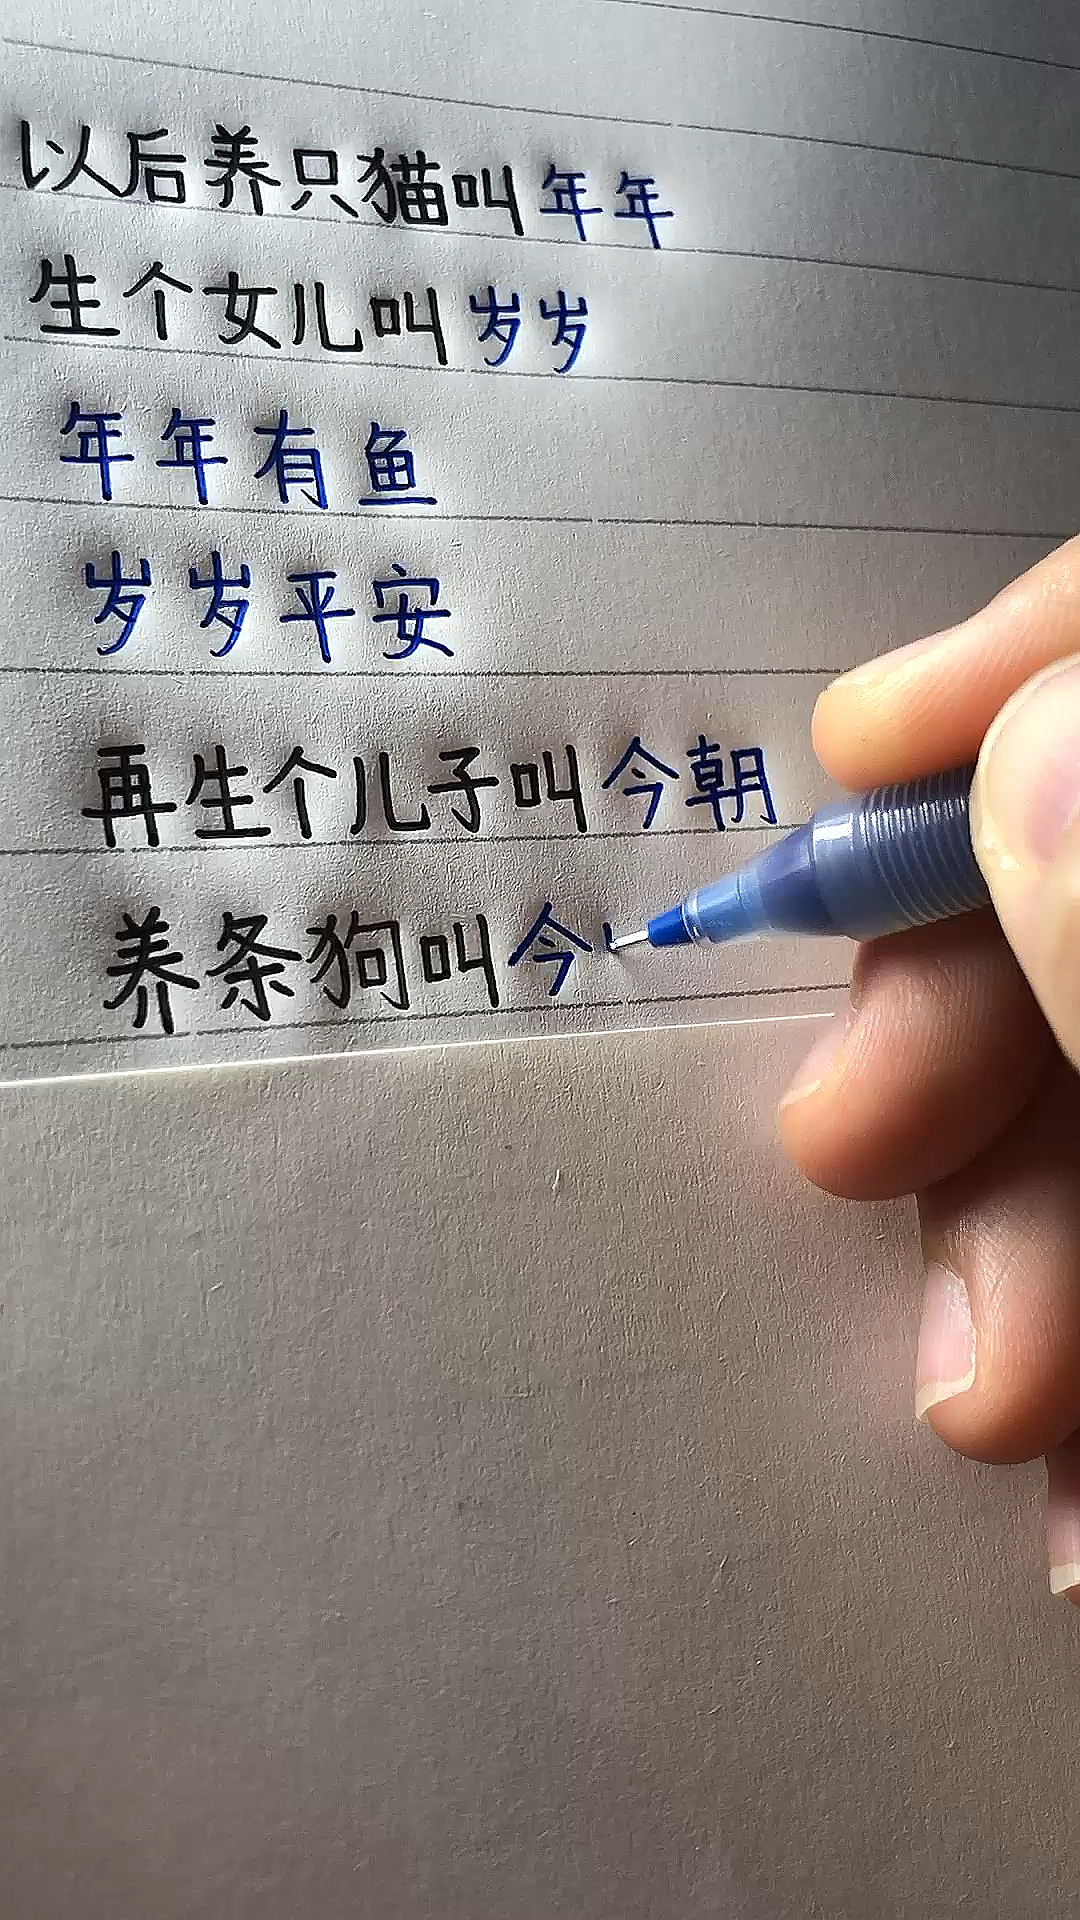 以后养只猫叫年年
生个女儿叫岁岁
年年有鱼
岁岁平安
再生个儿子叫今朝
养条狗叫今